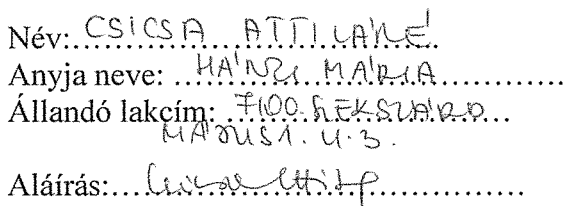 Név: CSICSA ATTILÁNÉ
Anyja neve: HÁNZI MÁRIA
Állandó lakcím: 7100 SZEKSZÁRD
MÁJUS 1. U. 3.
Aláírás: Csicsa Attiláné